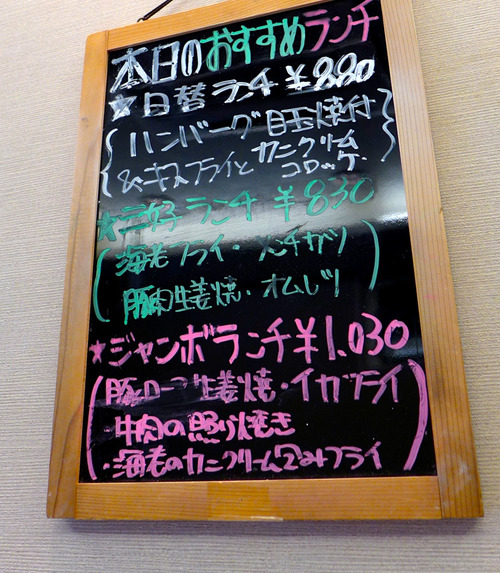 本日のおすすめランチ
★日替ランチ ¥880
ハンバーグ目玉焼付
&キスフライとカニクリムコロッケ
★三好ランチ ¥830
海老フライ・メンチカツ
豚肉生姜焼・オムレツ
★ジャンボランチ¥1.030
豚ロース生姜焼・イカフライ
・牛肉の照り焼き
・海老のカニクリームつつみフライ